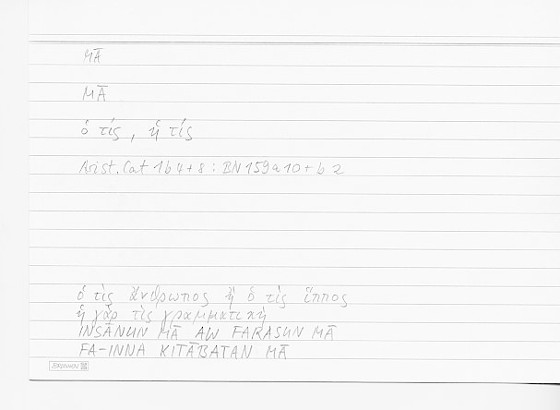 MĀ
MĀ
ὁ τίς, ἡ τίς
Arist. Cat 1b4+8 : BN 159a10+b2
ὁ τὶς ἄνθρωπος ἢ ὁ τὶς ἵππος
ἡ γάρ τὶς γραμματική
INSĀNUN MĀ AW FARASUN MĀ
FA-INNA KITĀBATAN MĀ